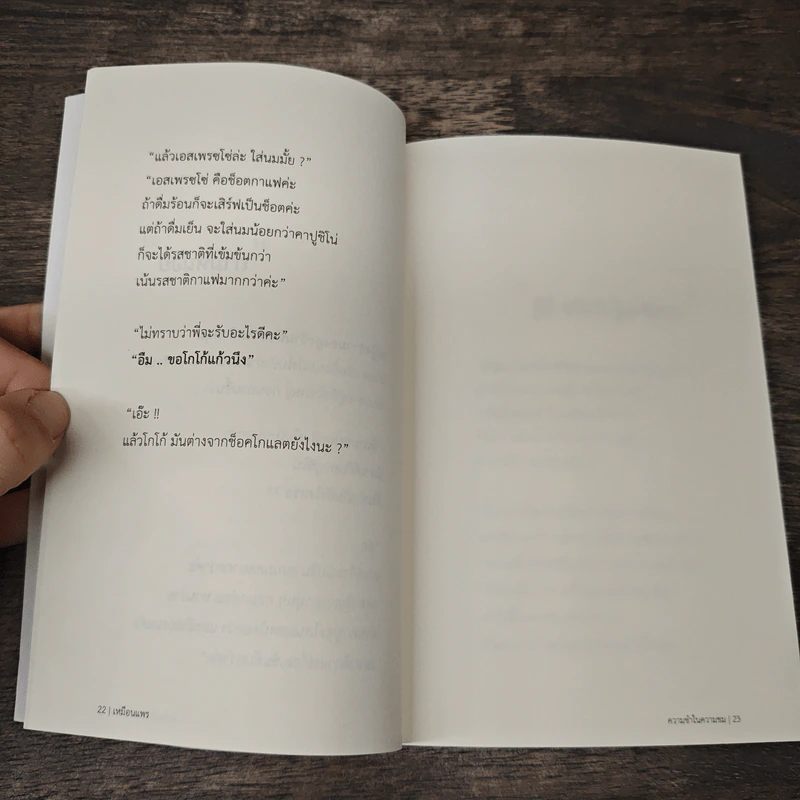 “แล้วเอสเพรซโซ่ล่ะ ใส่นมมั้ย ?”
“เอสเพรซโซ่ คือช็อตกาแฟค่ะ
ถ้าดื่มร้อนก็จะเสิร์ฟเป็นช็อตค่ะ
แต่ถ้าดื่มเย็น จะใส่นมน้อยกว่าคาปูชิโน่
ก็จะได้รสชาติที่เข้มข้นกว่า
เน้นรสชาติกาแฟมากกว่าค่ะ”
“ไม่ทราบว่าพี่จะรับอะไรดีคะ”
“อืม .. ขอโกโก้แก้วนึง”
“เอ๊ะ !!
แล้วโกโก้ มันต่างจากช็อคโกแลตยังไงนะ ?”
22 | เหมือนแพร
ความช้ำในความขม | 23